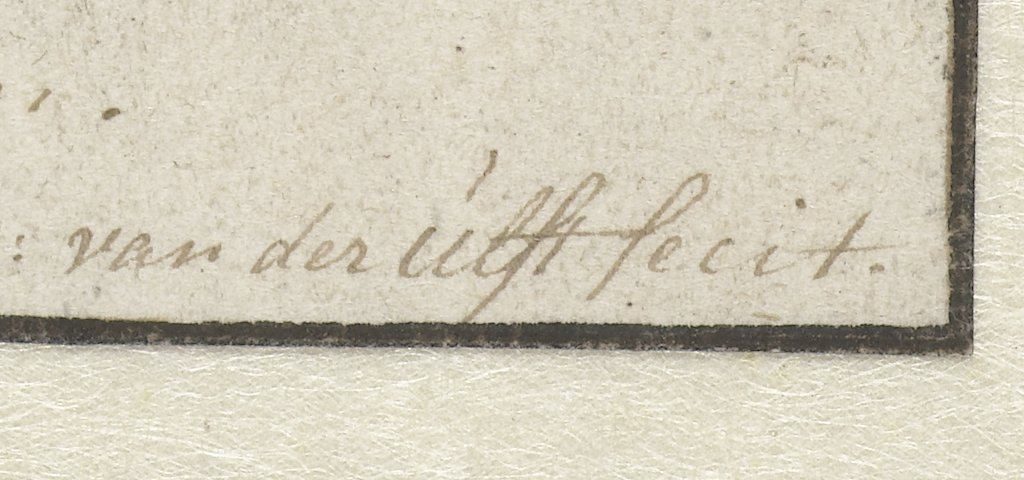 : van der Ulft fecit.